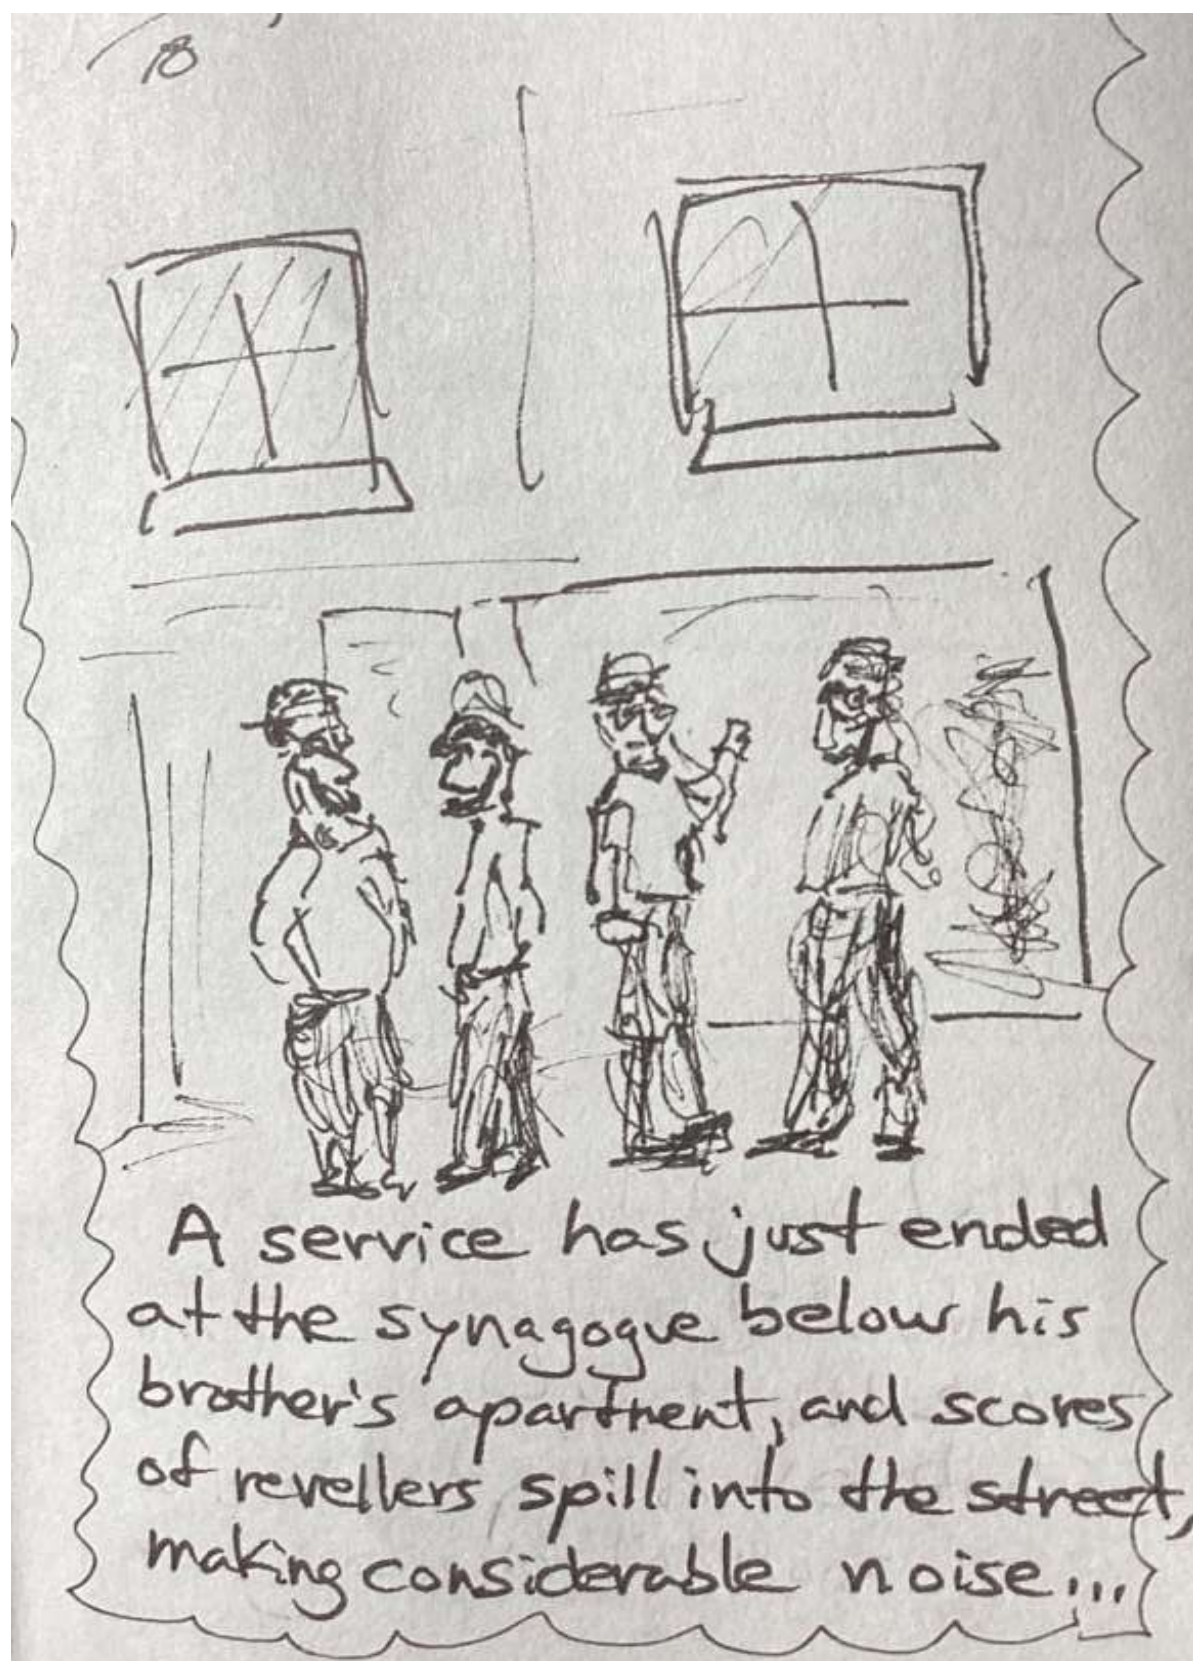 18
A service has just ended
at the synagogue below his
brother's apartment, and scores
of revellers spill into the street,
making considerable noise...